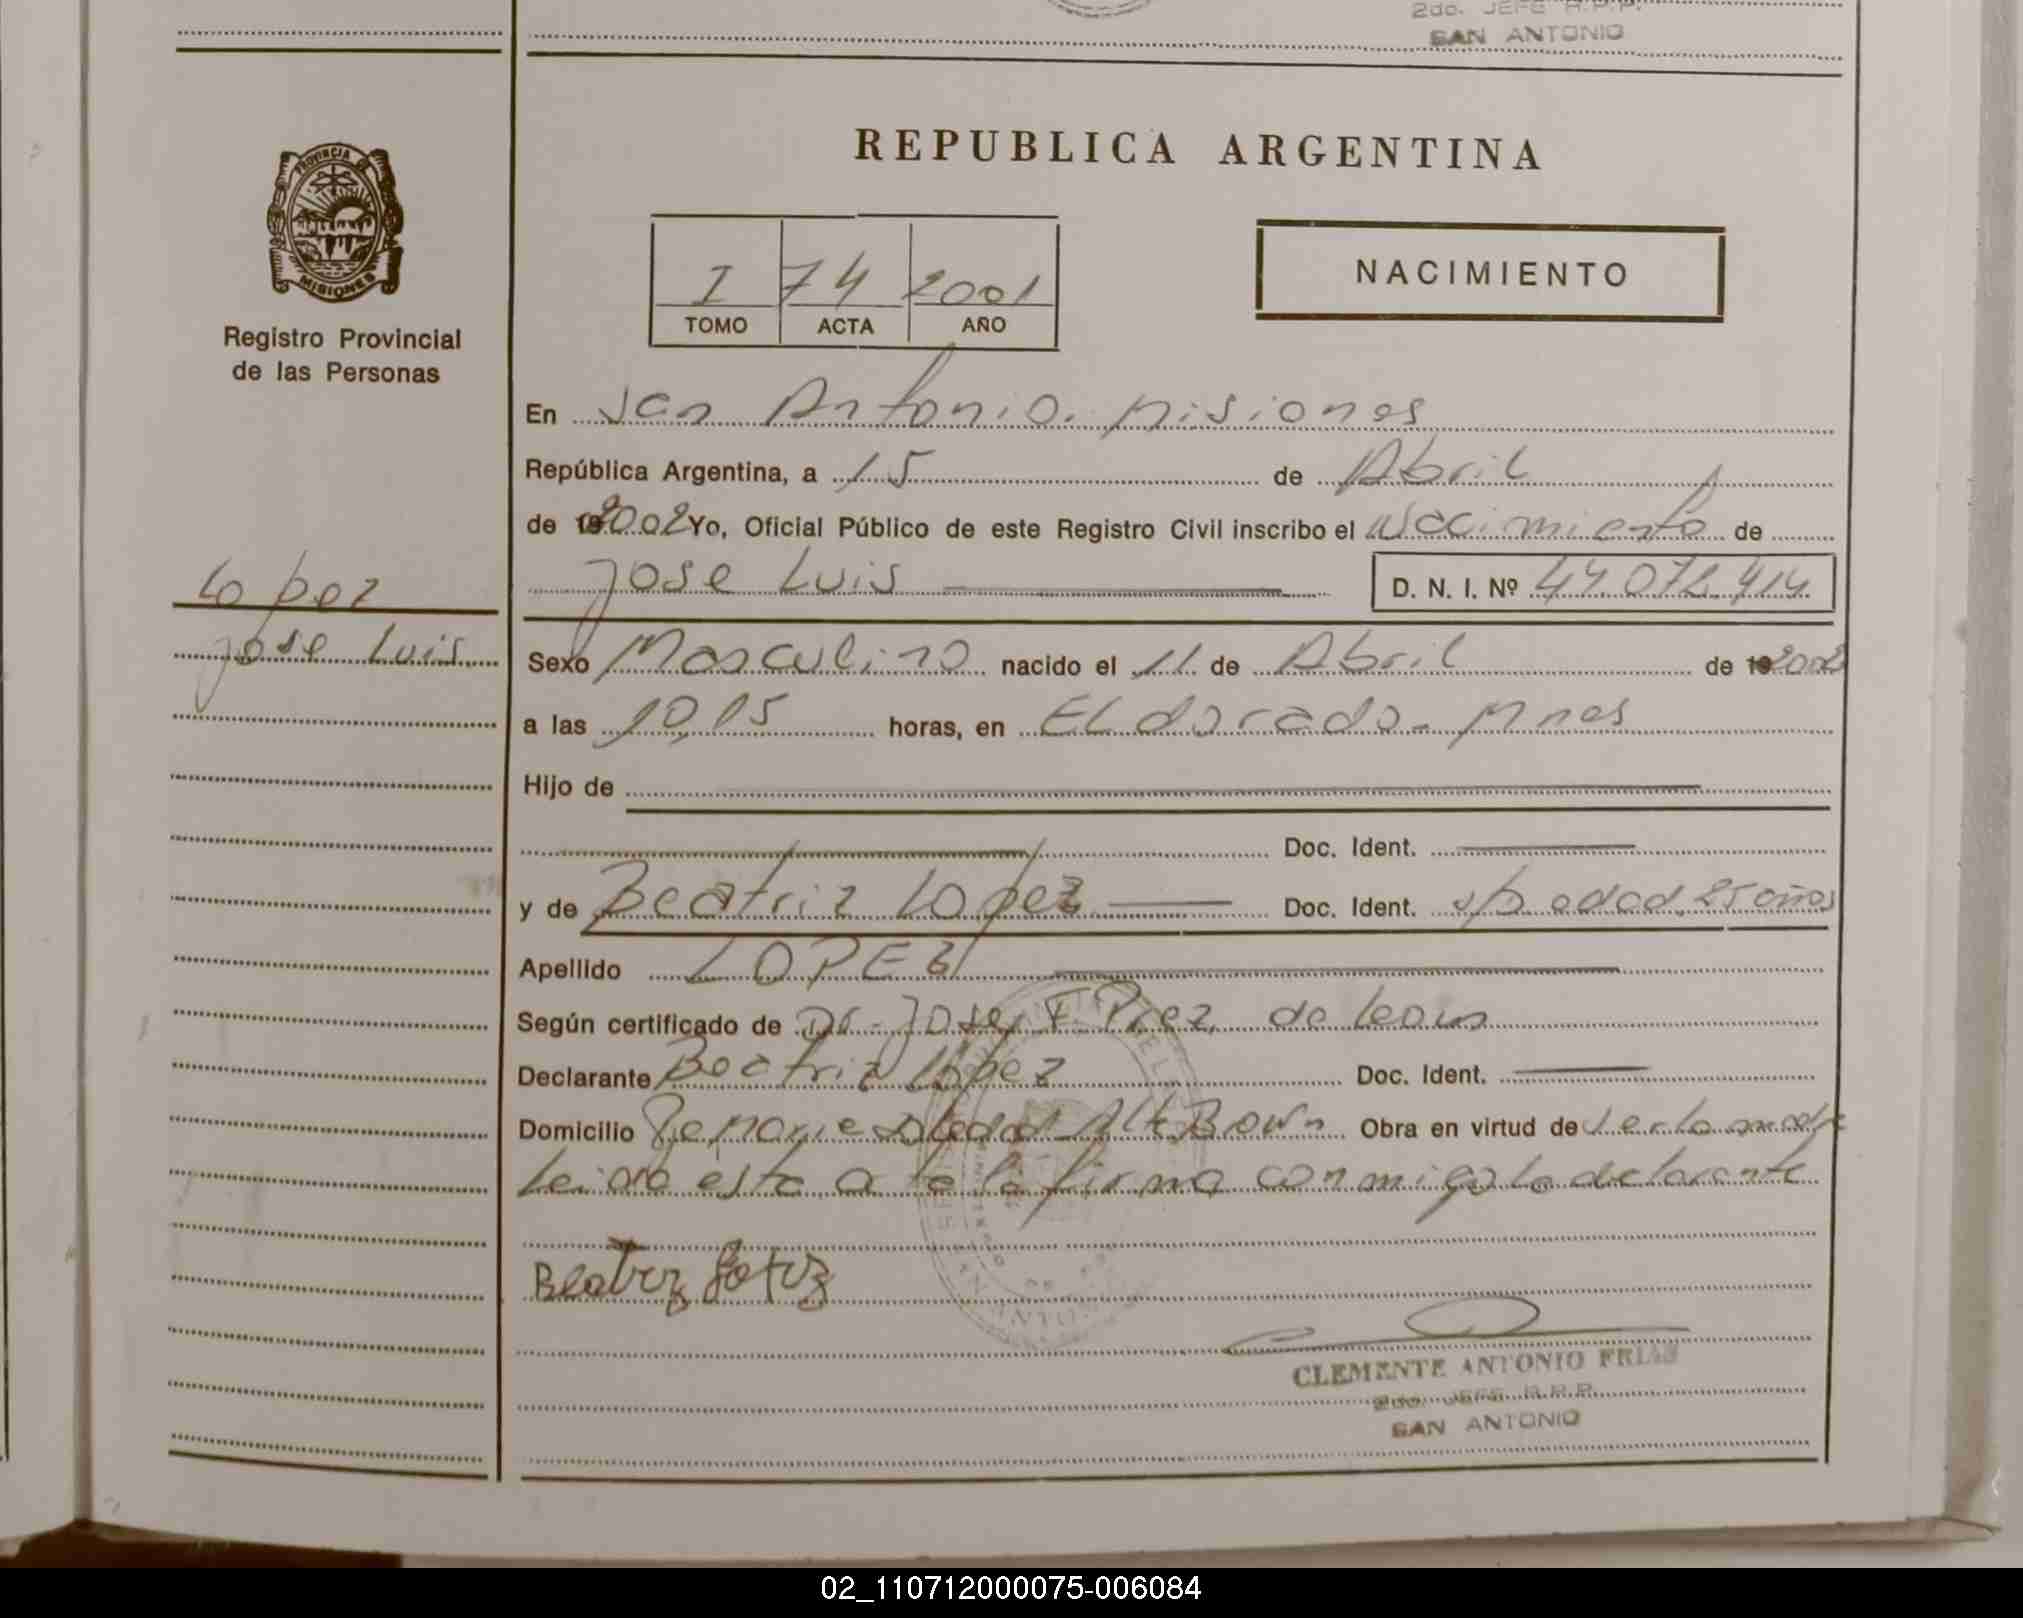 2do. JEFE R.P.P.
SAN ANTONIO
PROVINCIA DE
MISIONES
Registro Provincial
de las Personas
Lopez
Jose Luis
REPUBLICA ARGENTINA
I 74 2001
TOMO ACTA AÑO
NACIMIENTO
En San Antonio. Misiones
República Argentina, a 15 de Abril
de 2002 Yo, Oficial Público de este Registro Civil inscribo el Nacimiento de
Jose Luis D. N. I. Nº 44.072.414
Sexo Masculino nacido el 11 de Abril de 2002
a las 10,15 horas, en ELdorado - Mnes
Hijo de
Doc. Ident.
y de Beatriz Lopez Doc. Ident. s/p edad, 25 años
Apellido LOPEZ
Según certificado de Dr. Jose F. Prez de
Declarante Beatriz Lopez Doc. Ident.
Domicilio Obra en virtud de ser la madre
Leida esta acta la firma conmigo la declarante
Beatriz Lopez
CLEMENTE ANTONIO FRIAS
2do. JEFE R.P.P.
SAN ANTONIO
02_110712000075-006084